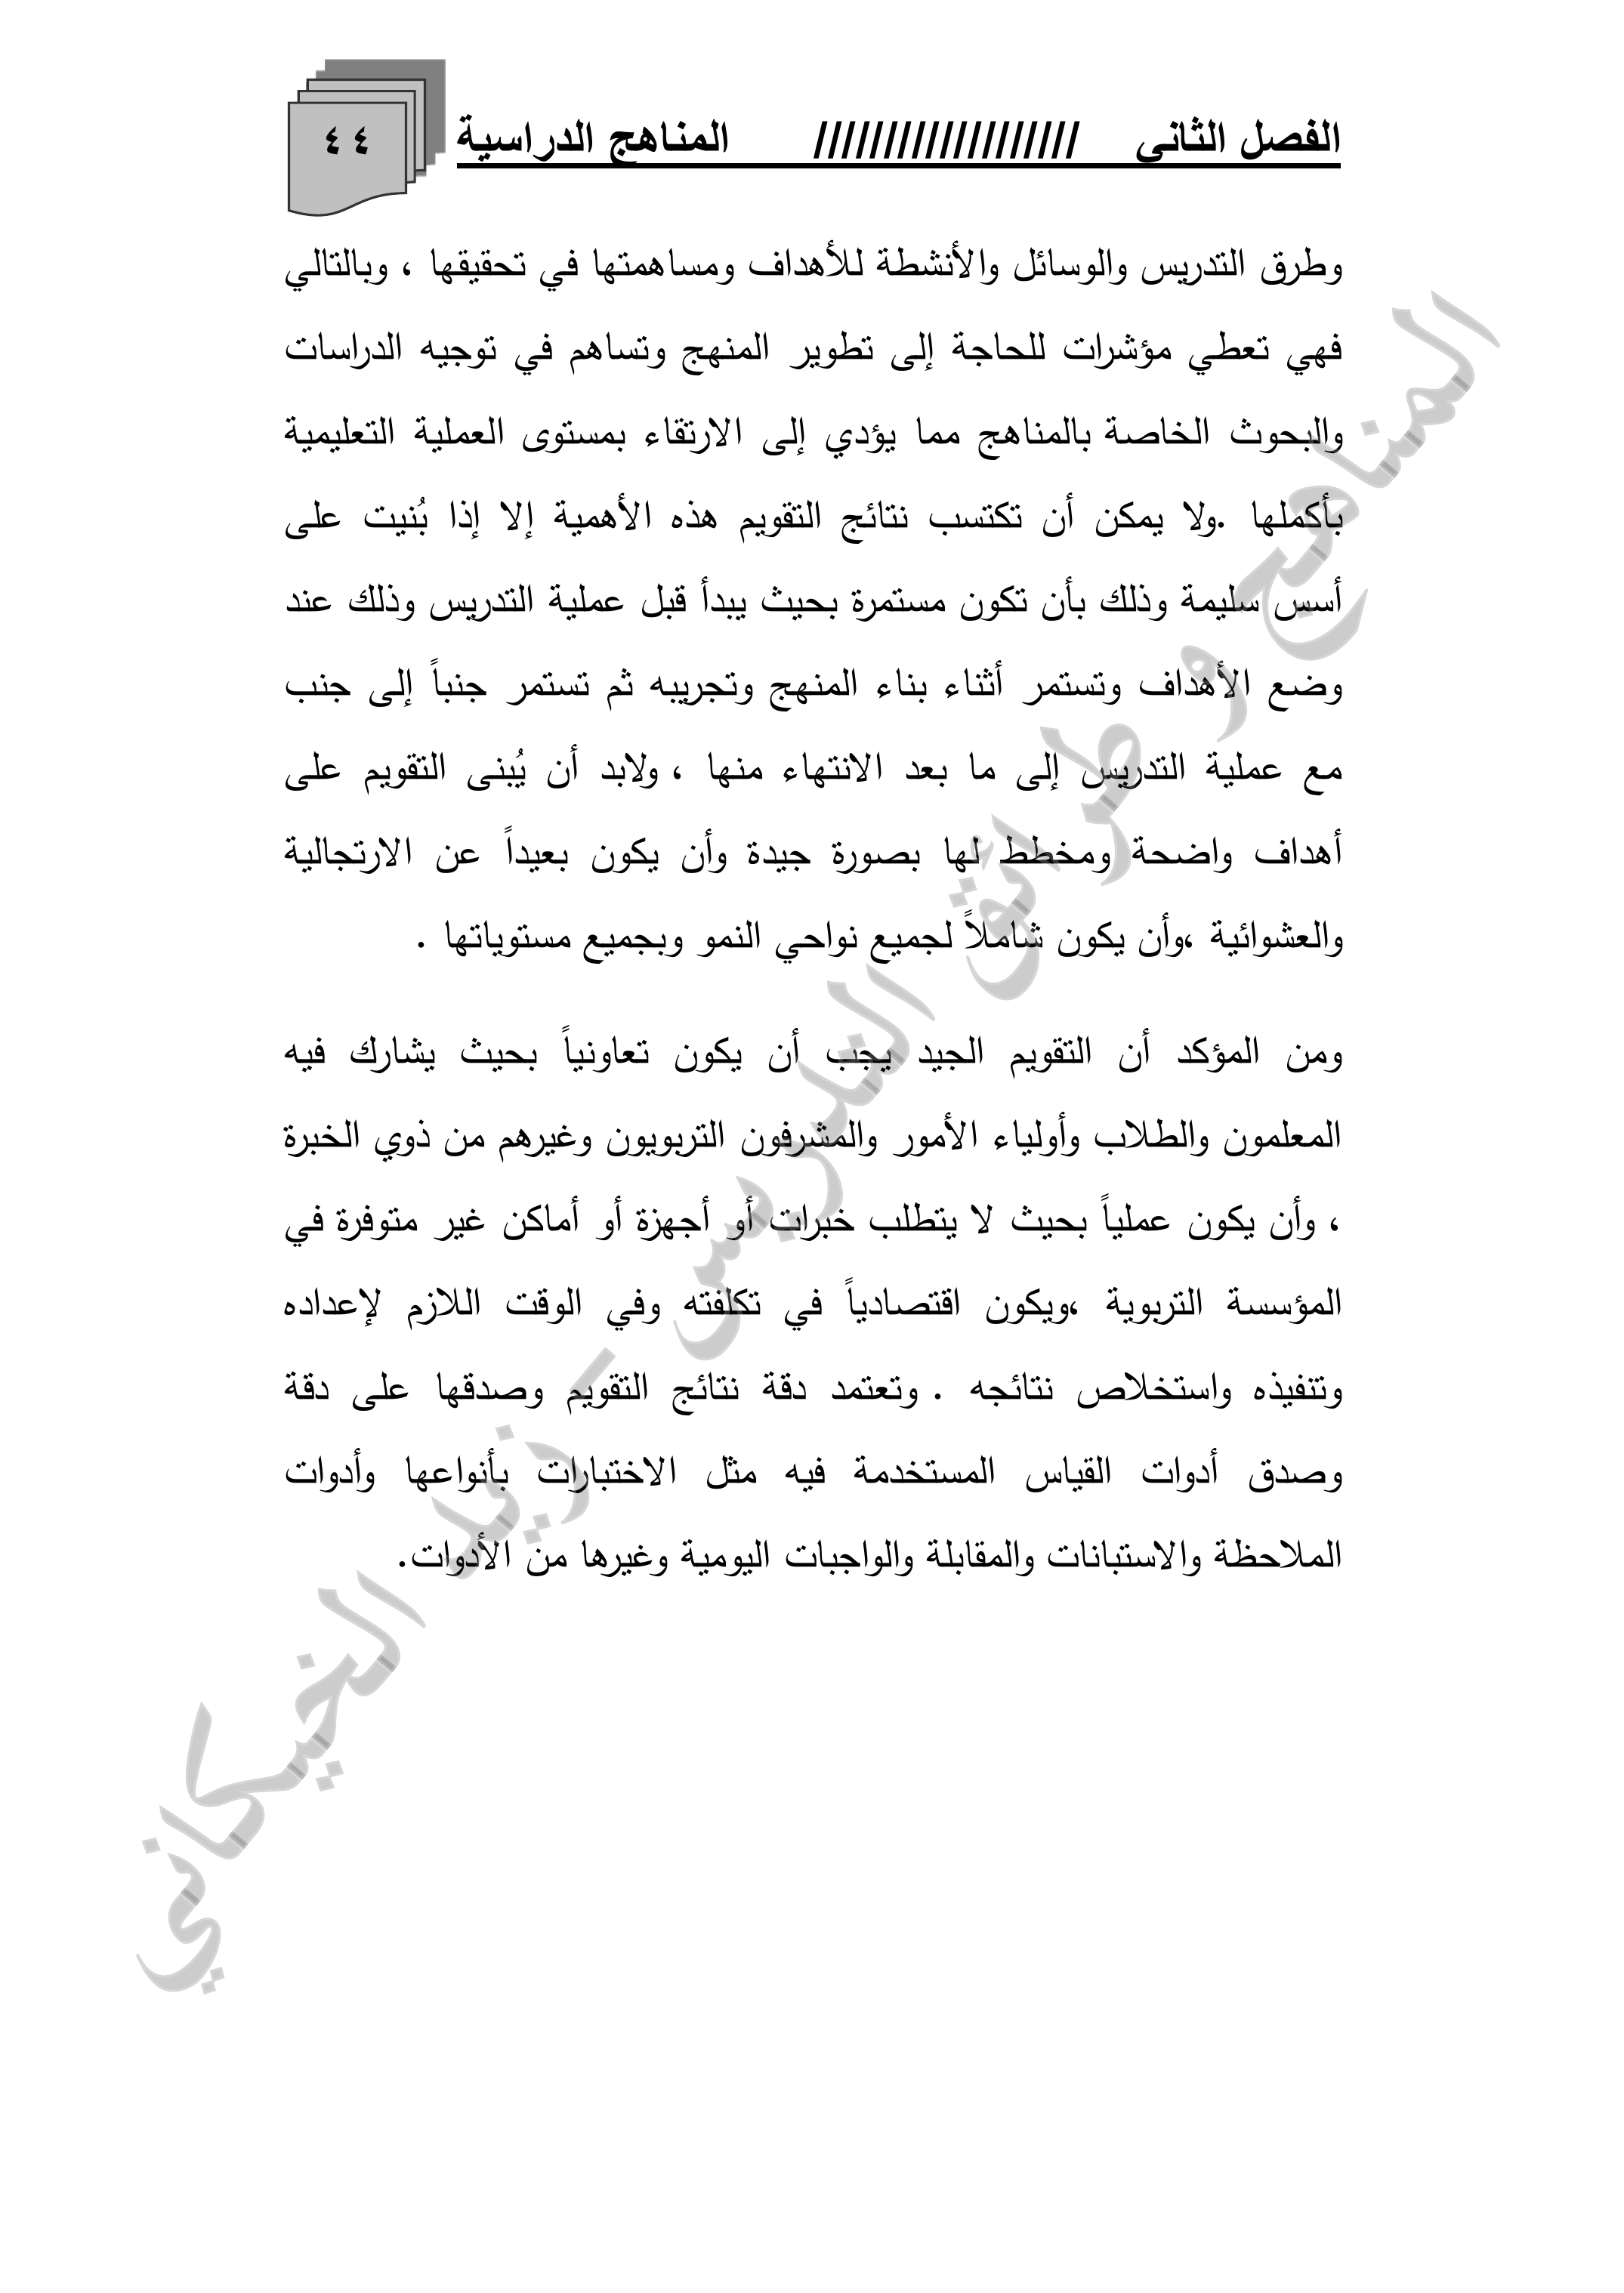 الفصل الثاني /////////////////// المناهج الدراسية ٤٤
وطرق التدريس والوسائل والأنشطة للأهداف ومساهمتها في تحقيقها ، وبالتالي
فهي تعطي مؤشرات للحاجة إلى تطوير المنهج وتساهم في توجيه الدراسات
والبحوث الخاصة بالمناهج مما يؤدي إلى الارتقاء بمستوى العملية التعليمية
بأكملها .ولا يمكن أن تكتسب نتائج التقويم هذه الأهمية إلا إذا بُنيت على
أسس سليمة وذلك بأن تكون مستمرة بحيث يبدأ قبل عملية التدريس وذلك عند
وضع الأهداف وتستمر أثناء بناء المنهج وتجريبه ثم تستمر جنباً إلى جنب
مع عملية التدريس إلى ما بعد الانتهاء منها ، ولابد أن يُبنى التقويم على
أهداف واضحة ومخطط لها بصورة جيدة وأن يكون بعيداً عن الارتجالية
والعشوائية ،وأن يكون شاملاً لجميع نواحي النمو وبجميع مستوياتها .
ومن المؤكد أن التقويم الجيد يجب أن يكون تعاونياً بحيث يشارك فيه
المعلمون والطلاب وأولياء الأمور والمشرفون التربويون وغيرهم من ذوي الخبرة
، وأن يكون عملياً بحيث لا يتطلب خبرات أو أجهزة أو أماكن غير متوفرة في
المؤسسة التربوية ،ويكون اقتصادياً في تكلفته وفي الوقت اللازم لإعداده
وتنفيذه واستخلاص نتائجه . وتعتمد دقة نتائج التقويم وصدقها على دقة
وصدق أدوات القياس المستخدمة فيه مثل الاختبارات بأنواعها وأدوات
الملاحظة والاستبانات والمقابلة والواجبات اليومية وغيرها من الأدوات.
المناهج و طرائق التدريس - زيد الخيكاني